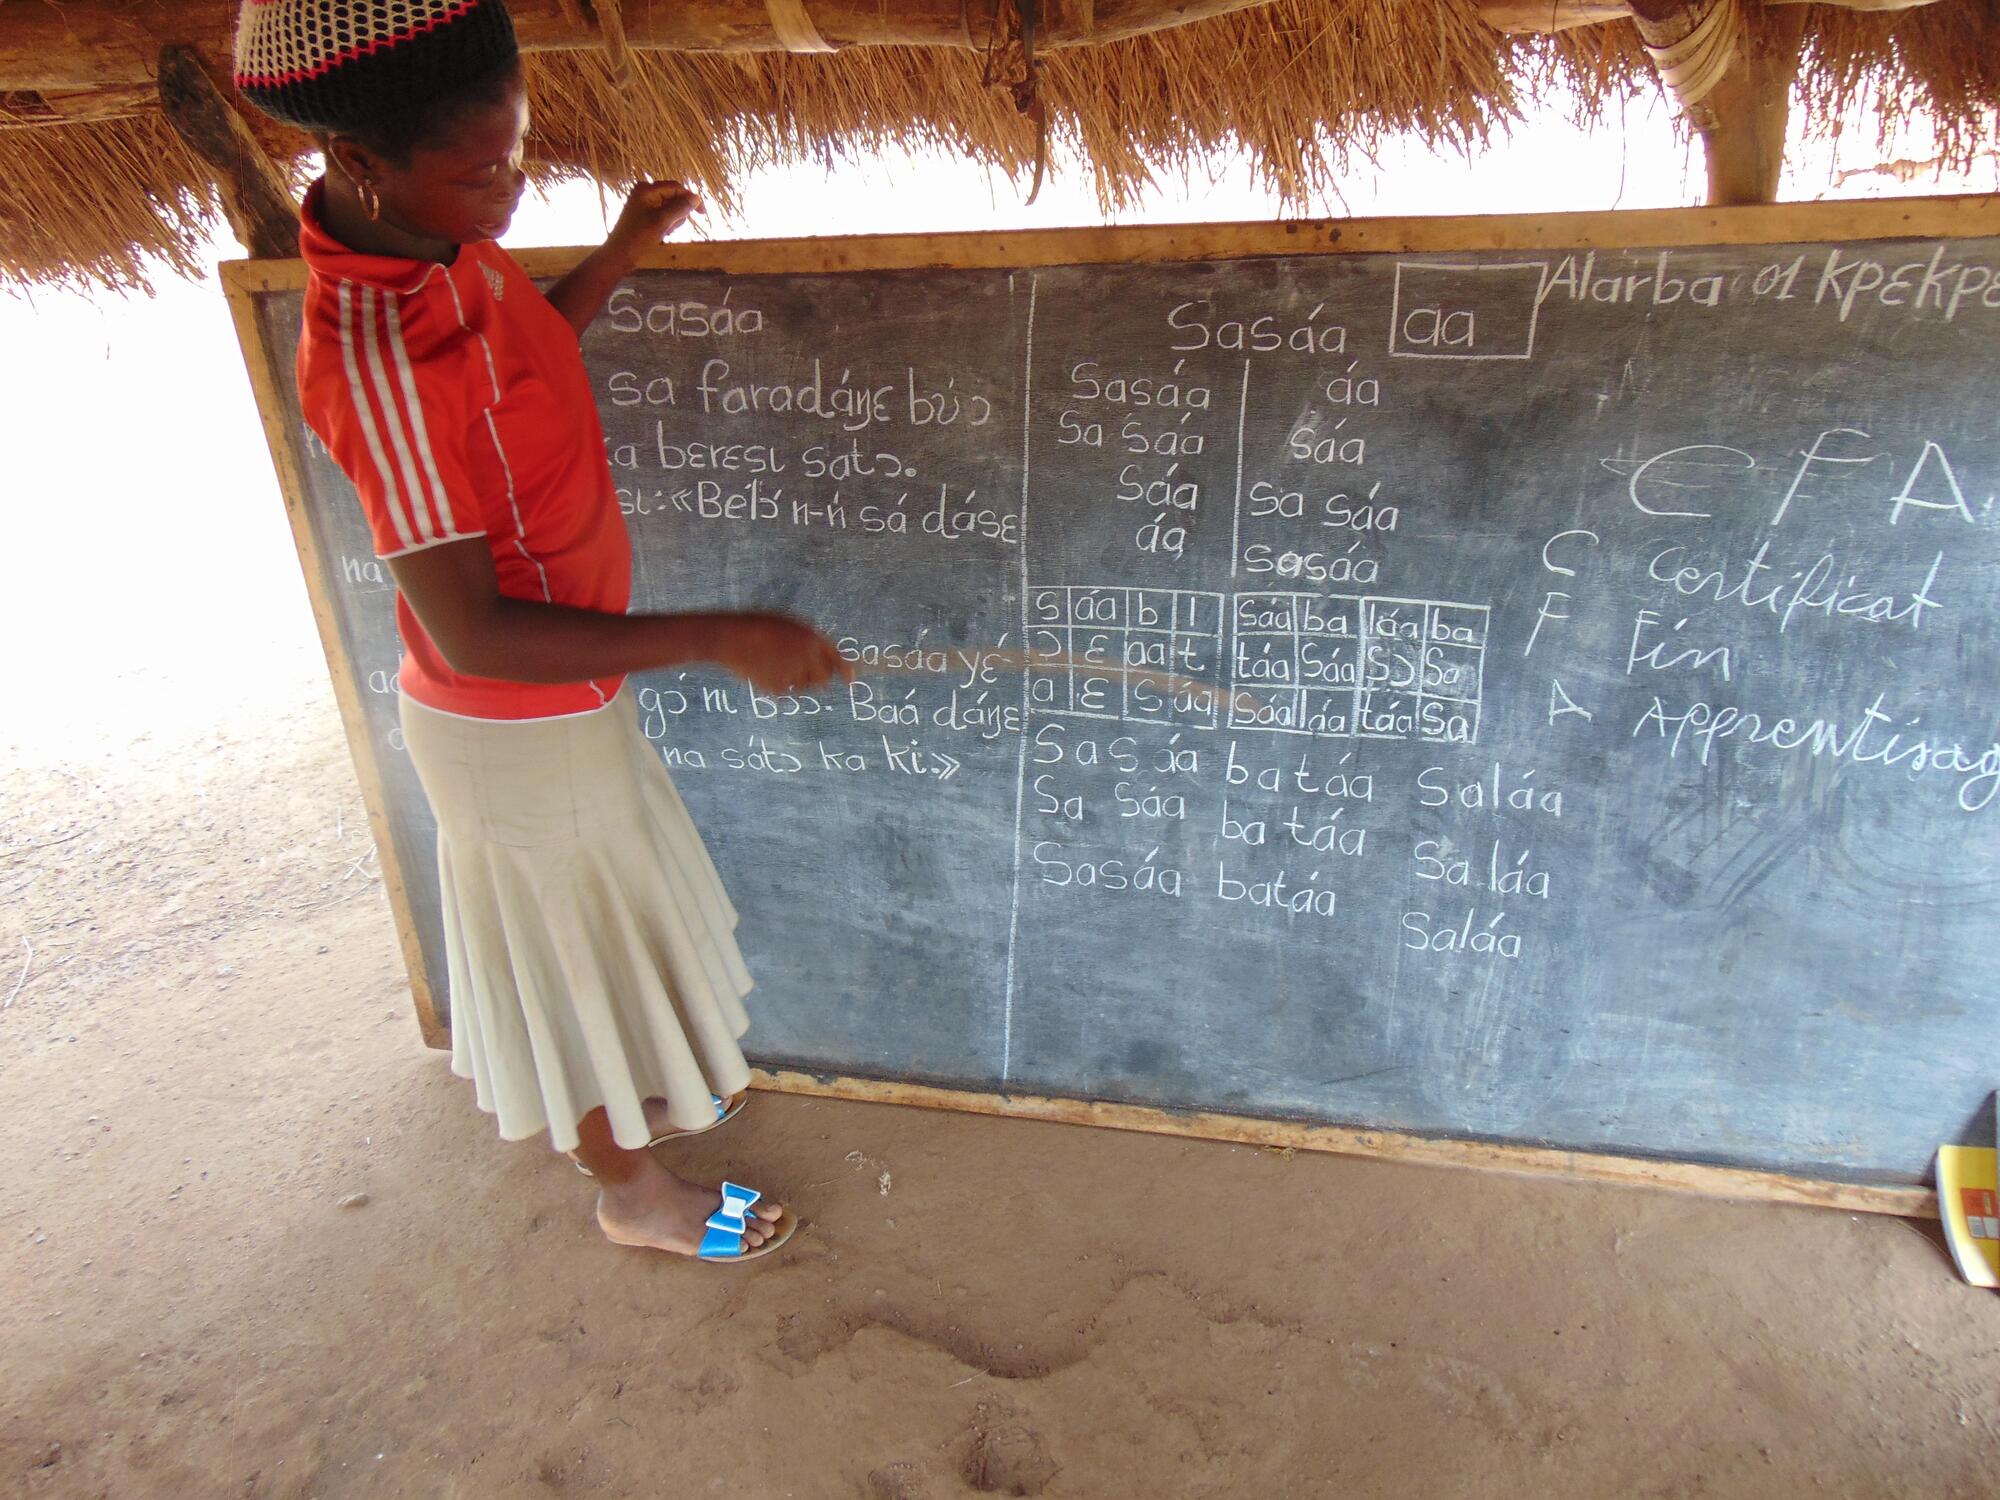 Sasáa
sa faradáŋɛ bʋ́ɔ
ka bɛrɛsɩ satɔ.
sɩ: «Bélɔ́ n-ń sá dásɛ
na
sasáa yɛ́
gɔ́ nɩ bɔ́ɔ. Baá dáŋɛ
na sátɔ ka ki.»
Sasáa aa
Sasáa áa
Sa Sáa sáa
Sáa Sa Sáa
áa Sasáa
s áa b l
ɔ ɛ aa t
a ɛ s áa
Sáa ba láa ba
táa Sáa Sɔ Sa
Sáa láa táa Sa
Sasáa batáa Saláa
Sa Sáa ba táa Sa láa
Sasáa batáa Saláa
Alarba 01 Kpɛkpɛ
C F A
C Certificat
F Fin
A Apprentisag